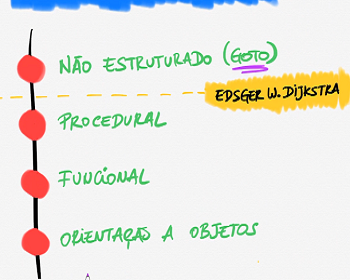 NÃO ESTRUTURADO (GOTO)
EDSGER W. DIJKSTRA
PROCEDURAL
FUNCIONAL
ORIENTAÇAS A OBJETOS